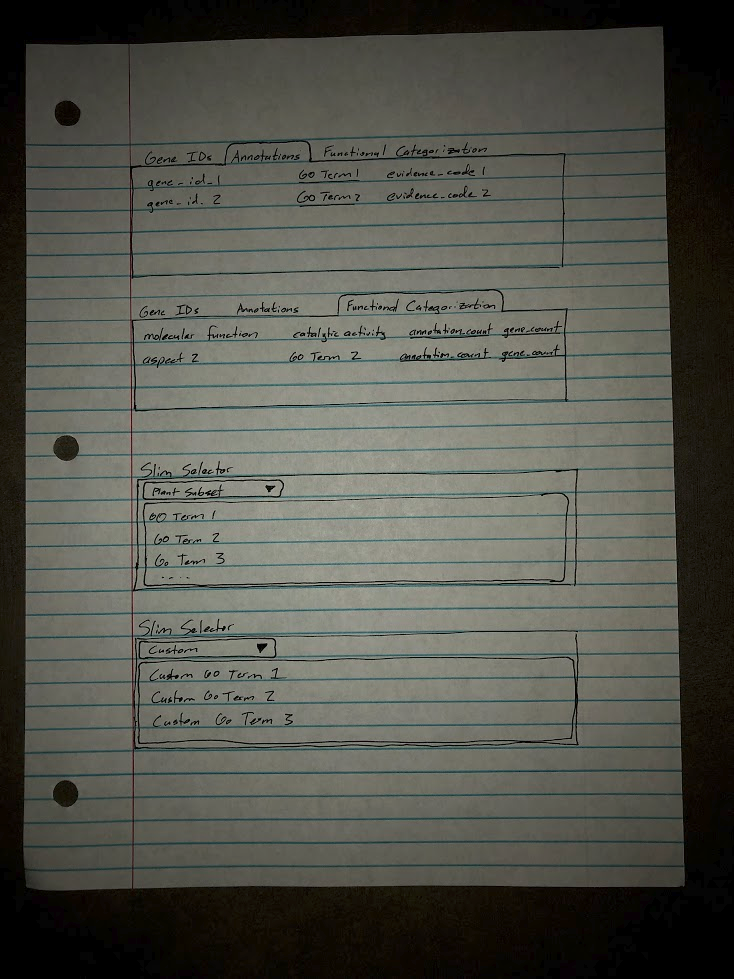 Gene IDs Annotations Functional Categorization
gene_id_1 GO Term 1 evidence_code 1
gene_id_2 GO Term 2 evidence_code 2
Gene IDs Annotations Functional Categorization
molecular function catalytic activity annotation_count gene_count
aspect 2 GO Term 2 annotation_count gene_count
Slim Selector
Plant Subset
GO Term 1
GO Term 2
Go Term 3
....
Slim Selector
Custom
Custom GO Term 1
Custom Go Term 2
Custom Go Term 3